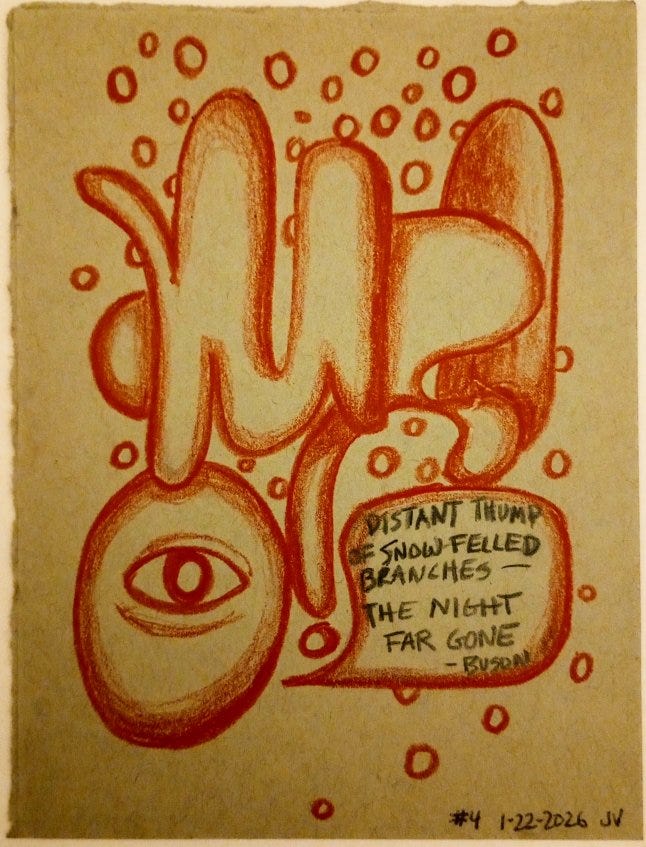 DISTANT THUMP
OF SNOW-FELLED
BRANCHES —
THE NIGHT
FAR GONE
- BUSON
#4 1-22-2026 JV